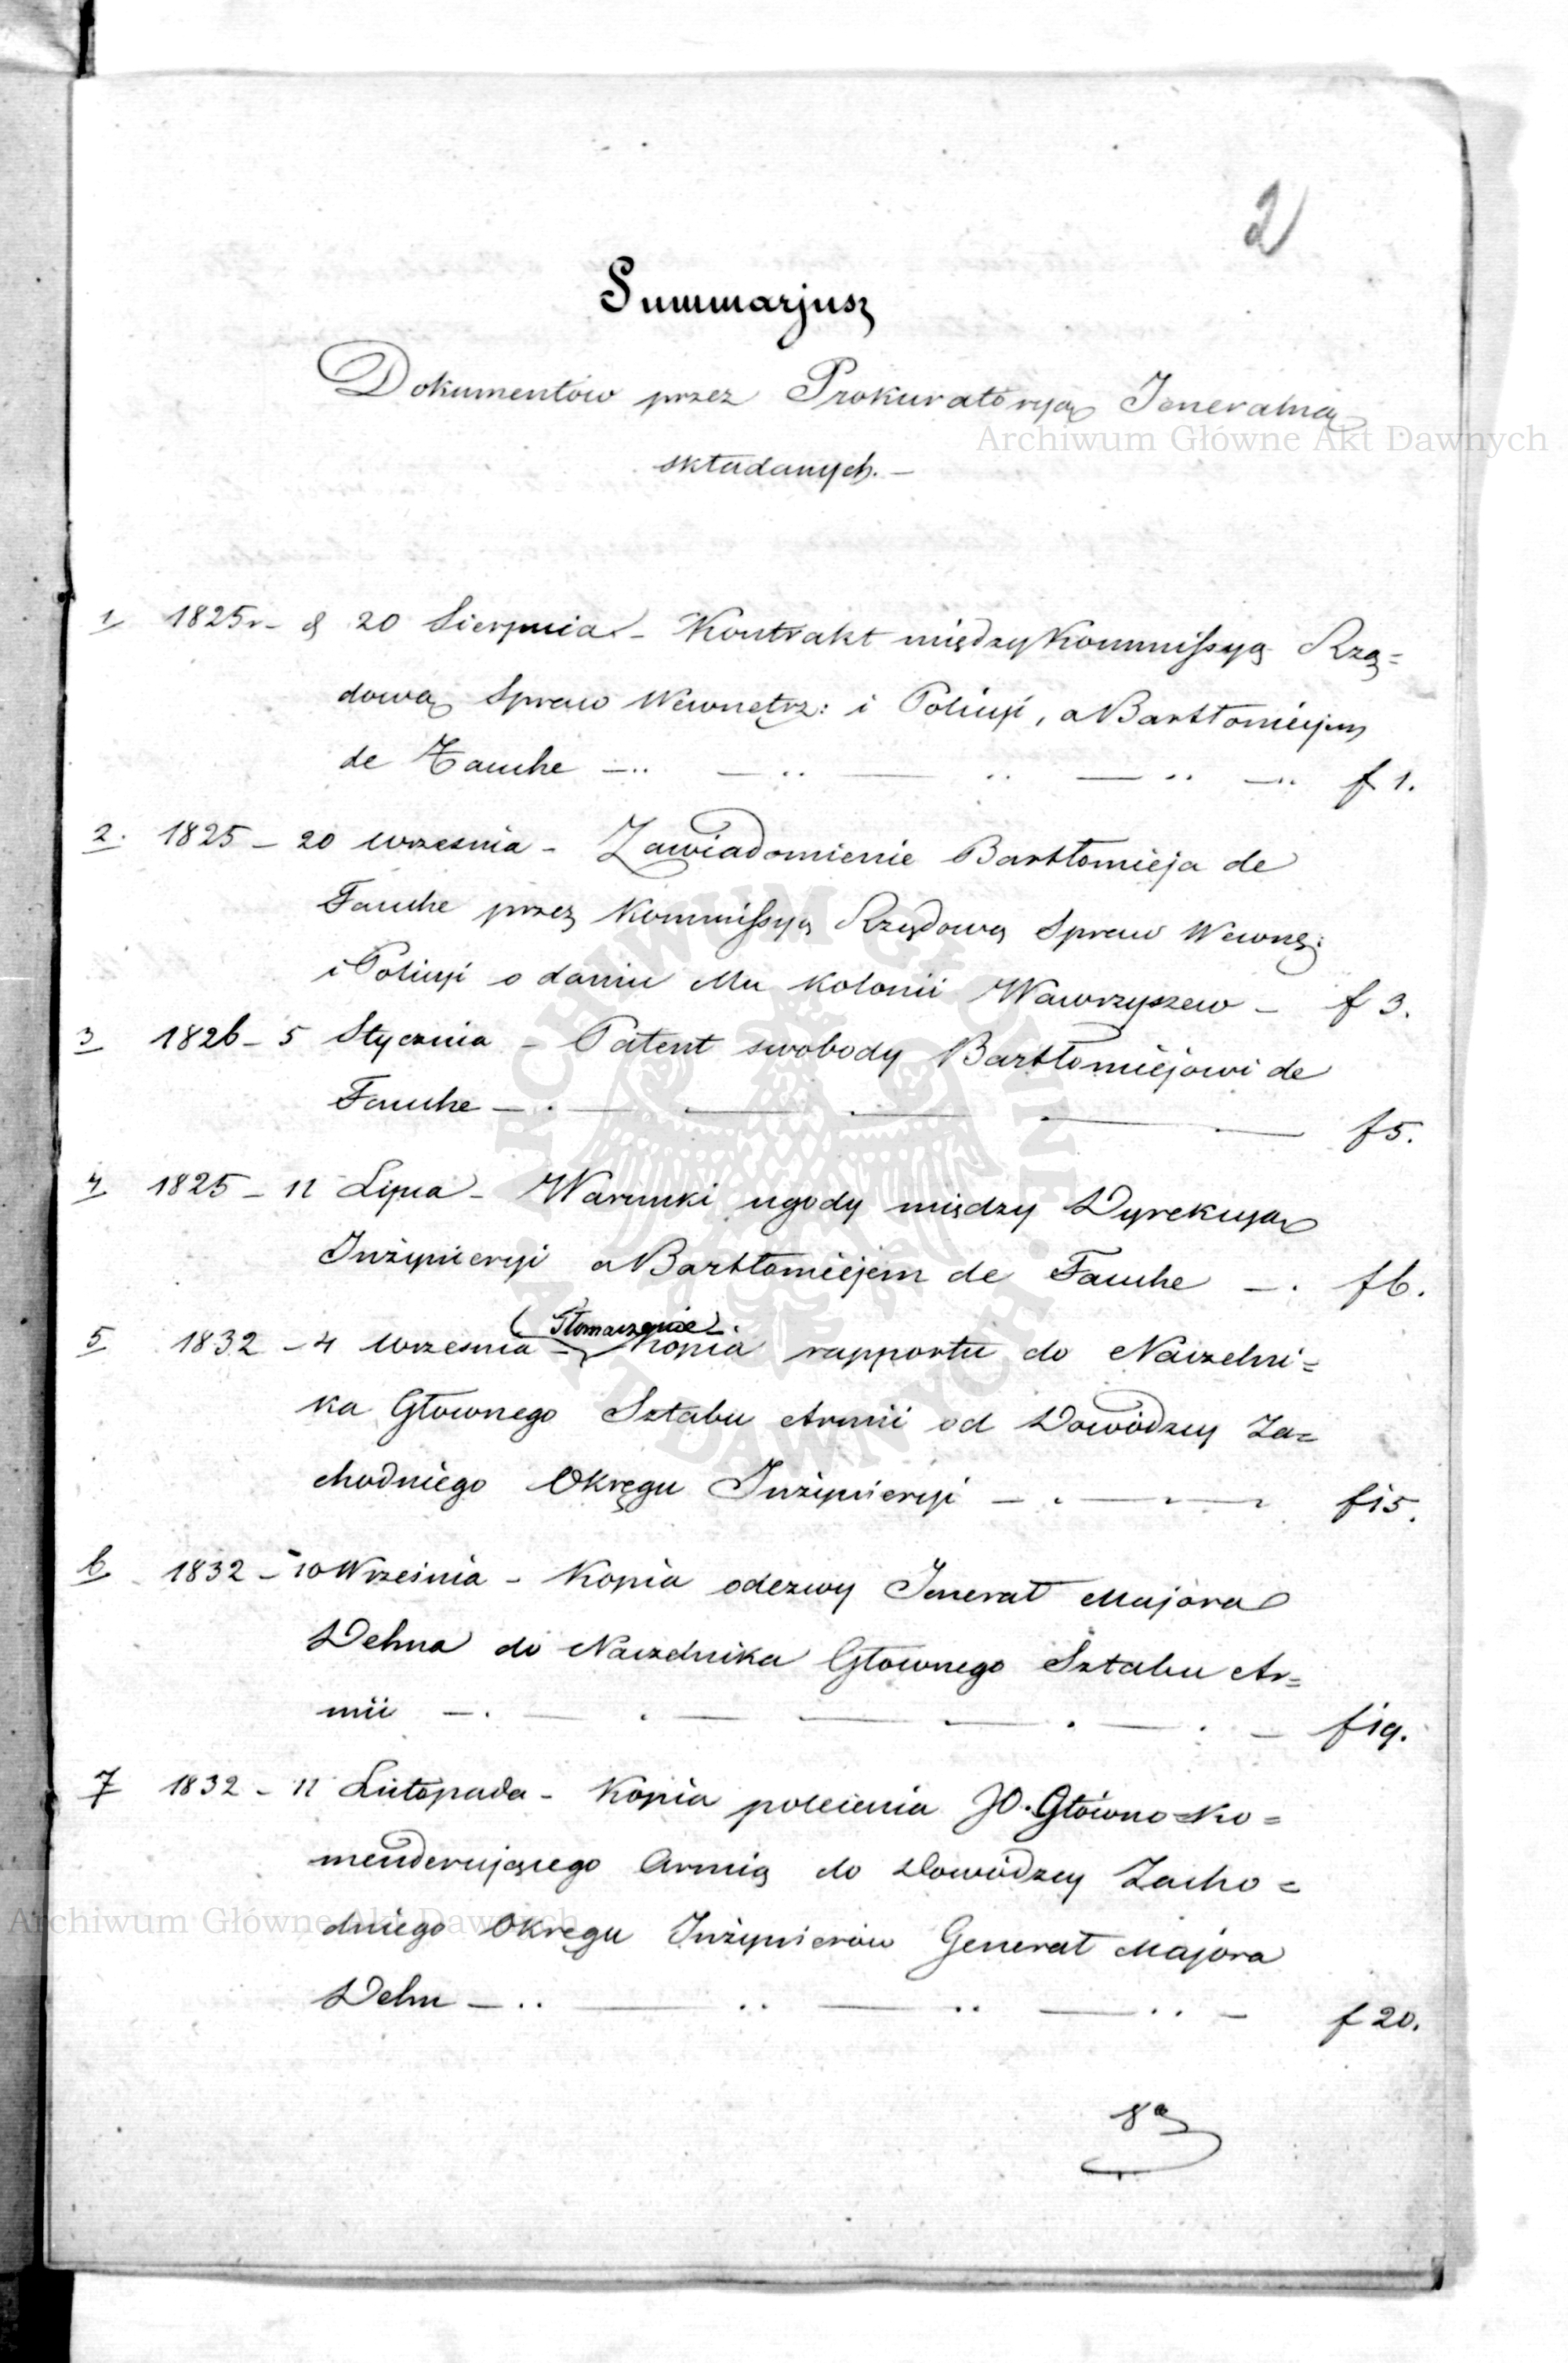 2
Summarjusz
Dokumentów przez Prokuratoryą Jeneralną
składanych. –
1 1825r – d 20 Sierpnia – Kontrakt między Kommissyą Rzą=
dową Spraw Wewnętrz: i Policyi, a Bartłomiejem
de Fauche f 1.
2. 1825 – 20 Września – Zawiadomienie Bartłomieja de
Fauche przez Kommissyą Rządową Spraw Wewnę:
i Policyi o daniu Mu Kolonii Wawrzyszew – f 3.
3 1826 – 5 Stycznia – Patent swobody Bartłomiejowi de
Fauche f 5.
4 1825 – 11 Lipca – Warunki ugody między Dyrekcyą
Inżynieryi a Bartłomiejem de Fauche – f 6.
(Tłomaczenie)
5 1832 – 4 Września – Kopia rapportu do Naczelni=
ka Głownego Sztabu Armii od Dowódzcy Za=
chodniego Okręgu Inżynieryi f 15.
6 1832 – 10 Września – Kopia odezwy Jenerał Majora
Dehna do Naczelnika Głownego Sztabu Ar=
mii f 19.
7 1832 – 11 Listopada – Kopia polecenia JO. Główno=Ko=
menderującego Armią do Dowódzcy Zacho=
dniego Okręgu Inżynierów Generał Majora
Dehn f 20.
Archiwum Główne Akt Dawnych
Archiwum Główne Akt Dawnych
ARCHIWUM GŁÓWNE AKT DAWNYCH